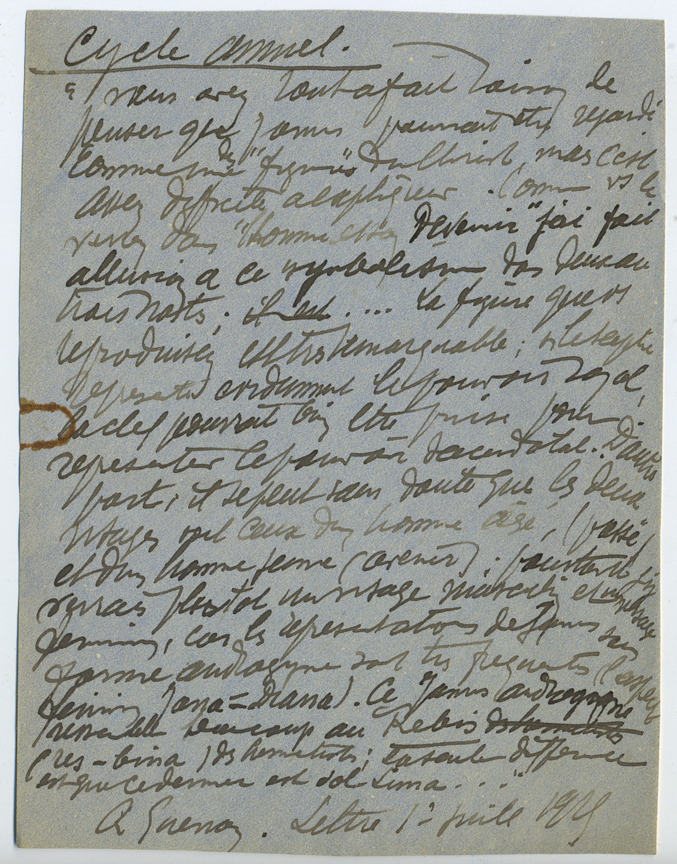 Cycle annuel.
"vous avez tout a fait raison de
penser que Janus pourrait être regardé
comme une des "figures" du Christ, mais c'est
assez difficile a expliquer. Comme vs le
verrez dans "l'homme et son devenir" j'ai fait
allusion a ce symbolisme dans deux ou
trois mots; il est .... La figure que vs
reproduisez est très remarquable; si le sceptre
représente evidemment le pouvoir royal,
la clef pourrait bien être prise pour
representer le pouvoir sacerdotal. D'autre
part, il se peut sans doute que les deux
visages soit ceux d'un homme âgé, (passé)
et d'un homme jeune (avenir); pourtant je
verrais plutot un visage masculin et un visage
feminin, car les représentations de Janus sous
forme androgyne sont très frequentes (l'aspect
feminin Jana = Diana). Ce "Janus androgyne
ressemble beaucoup au Rebis
(res-bina) des hermetistes; la seule difference
est que ce dernier est Sol-Luna ..."
R Guenon. Lettre 1er juill 1925